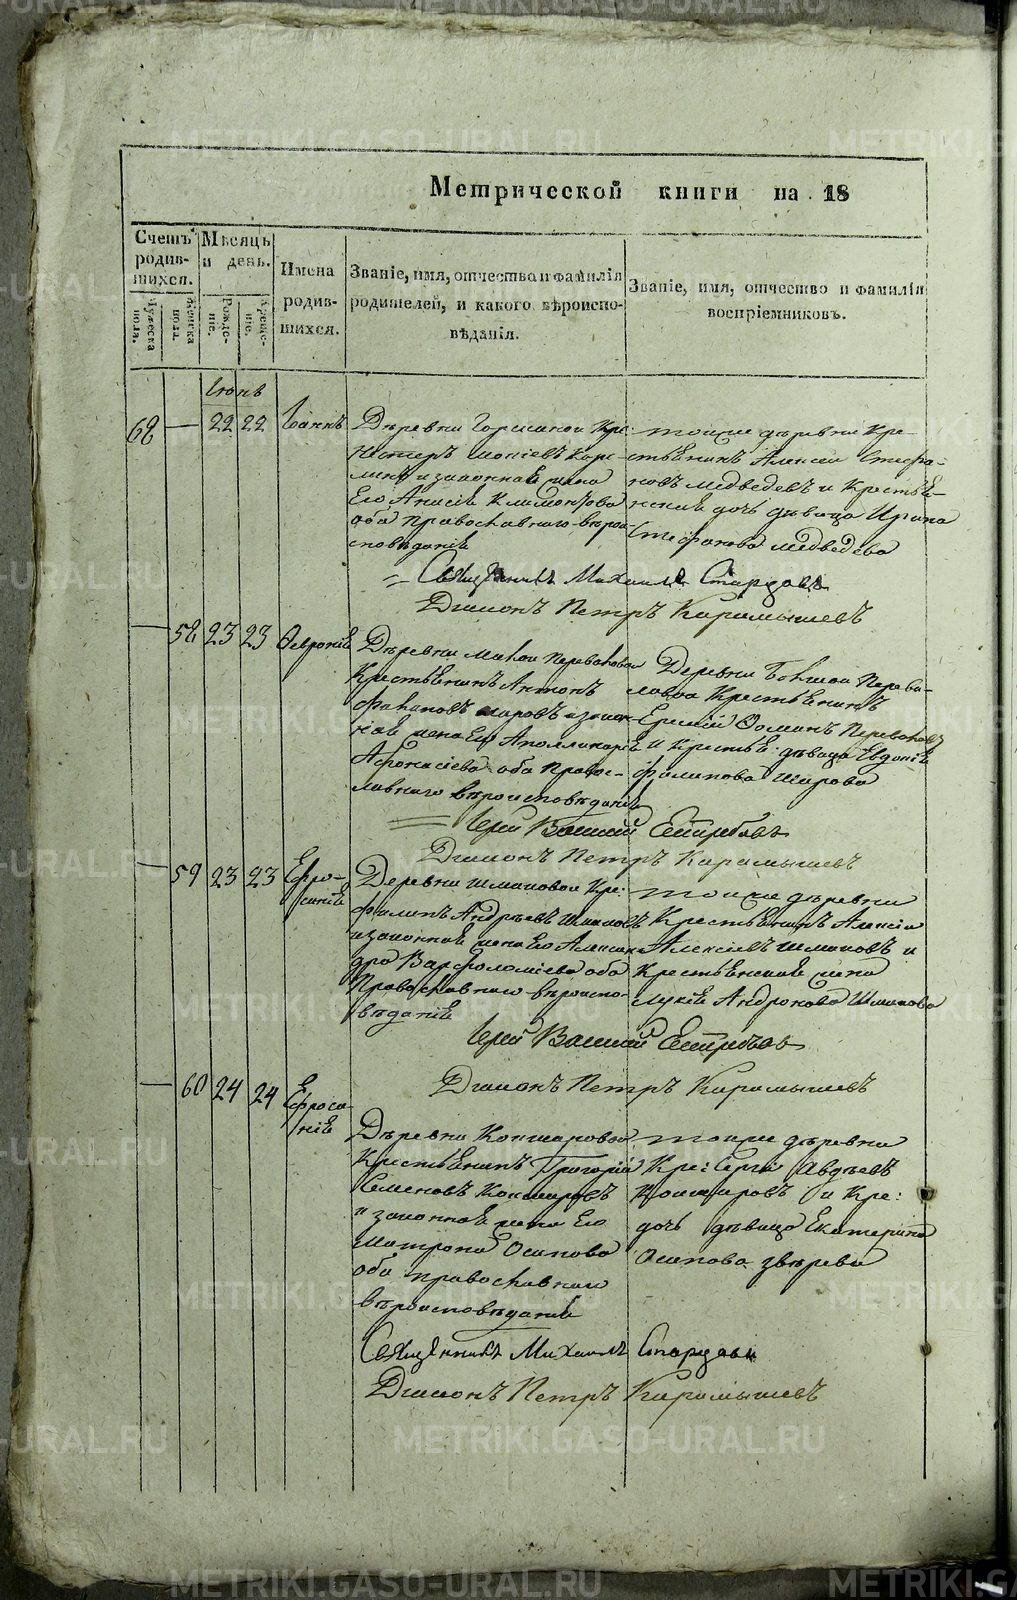 Метрической книги на 18
Счетъ родив-шихся.
Мѣсяцъ и день.
Имена родив-шихся.
Званіе, имя, отчество и фамилія родителей, и какого вѣроиспо-вѣданія.
Званіе, имя, отчество и фамилія воспріемниковъ.
Мужеска пола.
Женска пола.
Рожде-ніе.
Креще-ніе.
Іюнь
68 — 22 22 Іоаннъ
Деревни Кре:
Несторъ
и законная жена
Его Анисія Климонтова
оба православнаго вѣрои-
сповѣданія
тоеже деревни Кре-
стьянинъ Алексѣй Стефа-
новъ Медведевъ и Крестья-
нская дочь дѣвица Ирина
Стефанова Медведева
Священникъ Михаилъ Старцовъ
Дьяконъ Петръ Карамышевъ
— 58 23 23 Февронія
Деревни Малой Переваловой
Крестьянинъ Антонъ
и закон-
ная жена Его Аполлинарія
Афонасіева оба право-
славнаго вѣроисповѣданія
Деревни Большой Перева-
ловой Крестьянинъ
Ермилъ Фоминъ Переваловъ
и Крестья: дѣвица Евдокія
Филипова Шарова
Іерей Василій Ястребовъ
Дьяконъ Петръ Карамышевъ
— 59 23 23 Ефро-
синія
Деревни Шмаковой Кре:
Филипъ Андреевъ Шмаковъ
и законная жена Его Алексан-
дра Варфоломѣева оба
Православнаго вѣроиспо-
вѣданія
тоеже деревни
Крестьянинъ Алексѣй
Алексѣевъ Шмаковъ и
Крестьянская жена
Лукія Андронова Шмакова
Іерей Василій Ястребовъ
Дьяконъ Петръ Карамышевъ
— 60 24 24 Ефроси-
нія
Деревни Кокшаровой
Крестьянинъ Григорій
Семеновъ Кокшаровъ
и законная жена Его
Матрона Осипова
оба православнаго
вѣроисповѣданія
тоеже деревни
Кре: Сергій Авдѣевъ
Кокшаровъ и Кре:
дочь дѣвица Екатерина
Осипова Звѣрева
Священникъ Михаилъ Старцовъ
Дьяконъ Петръ Карамышевъ
METRIKI.GASO-URAL.RU